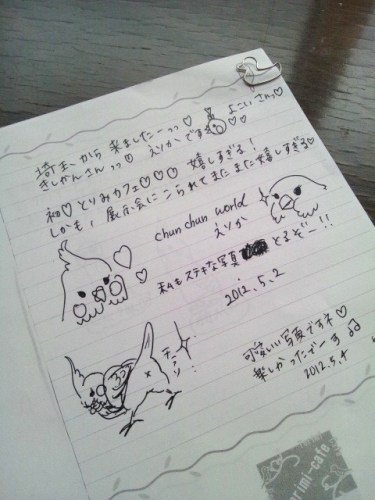 埼玉〜から 来ましたーっっ♡
きしかんさんっっ♡ えりかです よこいさんっ♡
初♡とりみカフェ♡♡♡ 嬉しすぎる!
しかも、展示会にこられてまたまた嬉しすぎる♡
chun chun world
えりか
私もステキな写真 とるぞー!!
2012.5.2
可愛いい写真ですネ♡
楽しかったでーす♫
2012.5.4
rimi-cafe